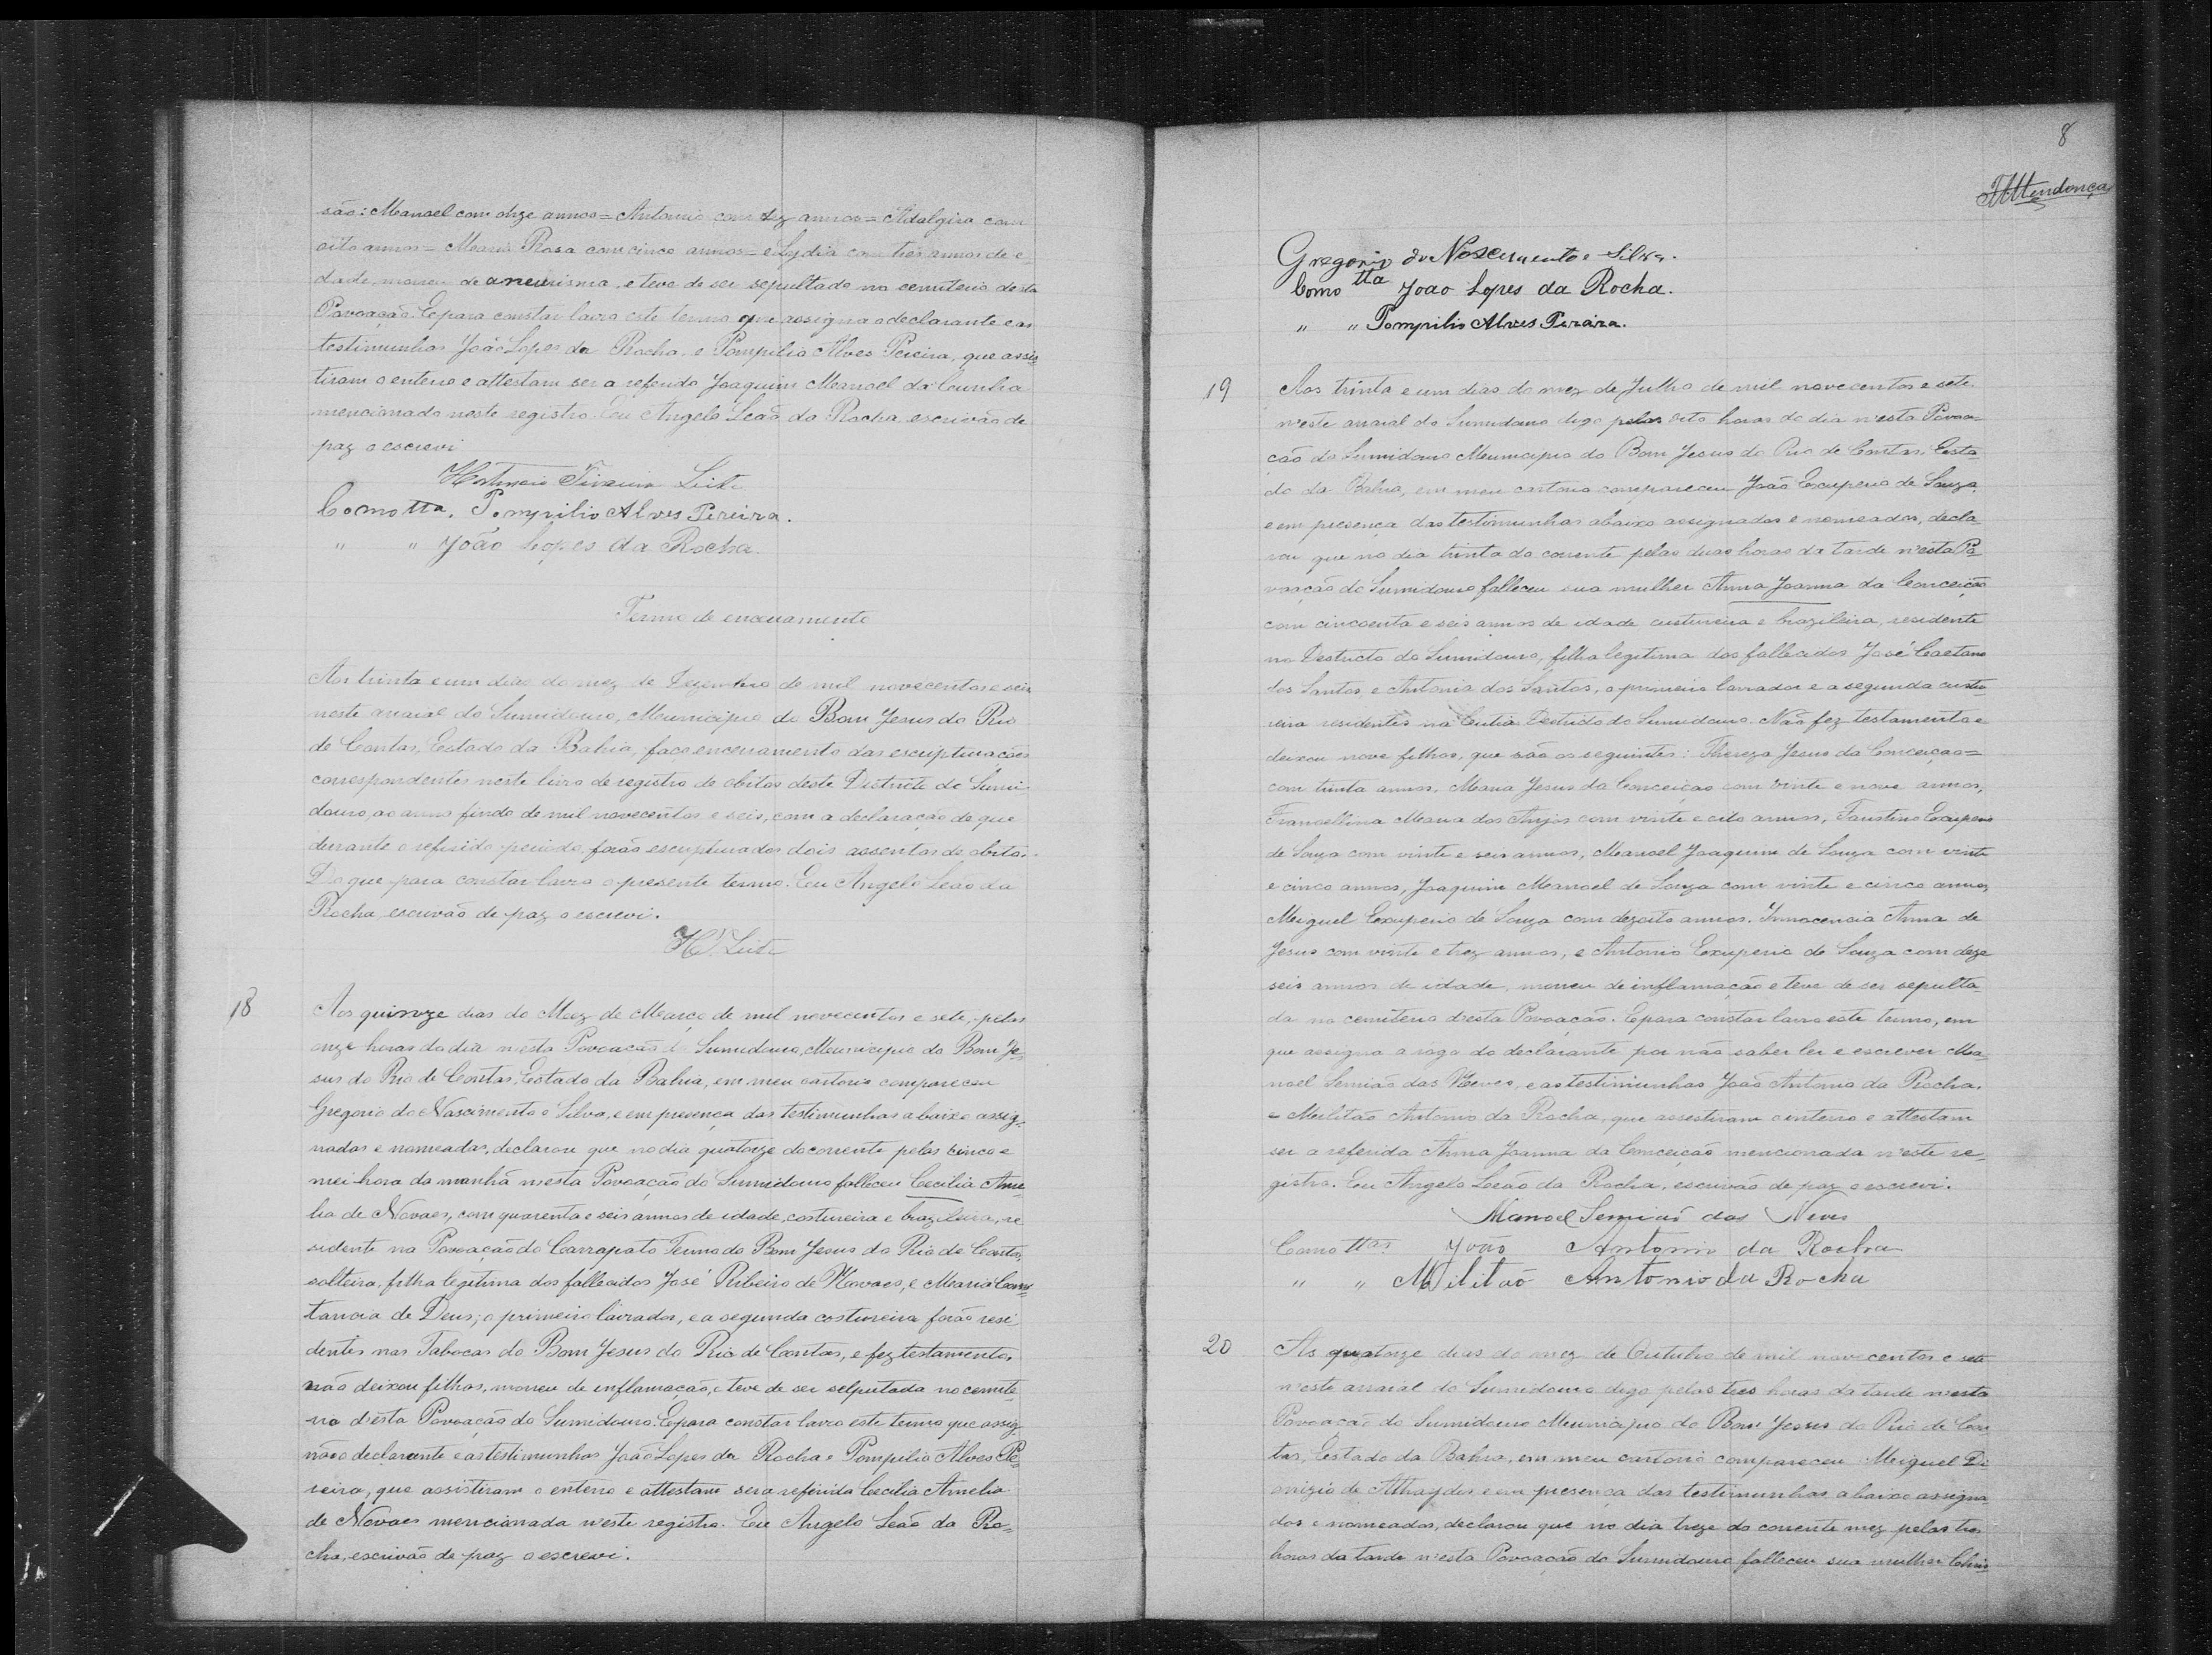 são: Manoel com onze annos = Antonio com dez annos = Adalgisa com
oito annos = Maria Rosa com cinco annos = e Lydia com tres annos de e
dade, morreu de aneurisma, e teve de ser sepultado no cemiterio desta
Povoação. E para constar lavro este termo que assigna o declarante e as
testimunhas João Lopes da Rocha, e Pompilio Alves Pereira, que assis
tiram o enterro e attestam ser o referido Joaquim Manoel da Cunha
mencionado neste registro. Eu Angelo Leão da Rocha escrivão de
paz o escrevi
Leite
Como tta. Pompilio Alves Pereira.
" " João Lopes da Rocha.
Termo de encerramento
Aos trinta e um dias do mez de Dezembro de mil novecentos e seis
neste arraial do Sumidouro, Municipio do Bom Jesus do Rio
de Contas, Estado da Bahia, faço encerramento das escripturações
correspondentes neste livro de registro de obitos deste Districto do Sumi
douro, ao anno findo de mil novecentos e seis, com a declaração de que
durante o referido periodo, forão escripturados dois assentos de obito.
Do que para constar lavro o presente termo. Eu Angelo Leão da
Rocha escrivão de paz o escrevi.
H. Leite
18
Aos quinze dias do Mez de Março de mil novecentos e sete, pelas
onze horas do dia nesta Povoação do Sumidouro, Municipio do Bom Je
sus do Rio de Contas, Estado da Bahia, em meu cartorio compareceu
Gregorio do Nascimento e Silva, e em presença das testimunhas abaixo assig
nadas e nomeadas, declarou que no dia quatorze do corrente pelas cinco e
mei hora da manhã nesta Povoação do Sumidouro falleceu Cecilia Ame
lia de Novaes, com quarenta e seis annos de idade, costureira e brazileira, re
sidente na Povoação do Carrapato Termo do Bom Jesus do Rio de Contas,
solteira, filha legitima dos fallecidos José Ribeiro de Novaes, e Maria Cons
tancia de Deus; o primeiro lavrador, e a segunda costureira forão resi
dentes nas Tabocas do Bom Jesus do Rio de Contas, e fez testamento,
não deixou filhos, morreu de inflamação, e teve de ser selputada no cemite
rio d'esta Povoação do Sumidouro. E para constar lavro este termo que assig
não o declarante e as testimunhas João Lopes da Rocha e Pompilio Alves Pe
reira, que assistiram o enterro e attestam ser a referida Cecilia Amelia
de Novaes mencionada n'este registro. Eu Angelo Leão da Ro
cha, escrivão de paz o escrevi.
8
Mendonça
Gregorio do Nascimento e Silva.
Como tta João Lopes da Rocha.
" " Pompilio Alves Pereira.
19
Aos trinta e um dias do mez de Julho de mil novecentos e sete
n'este arraial do Sumidouro digo pelas oito horas do dia n'esta Povoa
ção do Sumidouro Municipio do Bom Jesus do Rio de Contas, Esta
do da Bahia, em meu cartorio compareceu João Exuperio de Souza,
e em presença das testimunhas abaixo assignadas e nomeadas, decla
rou que no dia trinta do corrente pelas duas horas da tarde n'esta Po
voação do Sumidouro falleceu sua mulher Anna Joanna da Conceição
com cincoenta e seis annos de idade custureira e brazileira, residente
no Destricto do Sumidouro, filha legitima dos fallecidos José Caetano
dos Santos e Antonia dos Santos, o primeiro lavrador e a segunda custu
reira residentes na Destricto do Sumidouro. Não fez testamento e
deixou nove filhos, que são os seguintes: Thereza Jesus da Conceição =
com trinta annos, Maria Jesus da Conceição com vinte e nove annos,
Francellina Maria dos Anjos com vinte e oito annos, Faustino Exuperio
de Souza com vinte e seis annos, Manoel Joaquim de Souza com vinte
e cinco annos, Joaquim Manoel de Souza com vinte e cinco annos,
Miguel Exuperio de Souza com dezoito annos. Innocencia Anna de
Jesus com vinte e trez annos, e Antonio Exuperio de Souza com deze
seis annos de idade, morreu de inflamação e teve de ser sepulta
da no cemiterio d'esta Povoação. E para constar lavro este termo, em
que assigna a rogo do declarante por não saber ler e escrever Ma
noel Semião das Neves, e as testimunhas João Antonio da Rocha.
e Militão Antonio da Rocha, que assestiram o enterro e attestam
ser a referida Anna Joanna da Conceição mencionada n'este re
gistro. Eu Angelo Leão da Rocha, escrivão de paz o escrevi.
Manoel Semião das Neves
Como ttas João Antonio da Rocha
" " Militão Antonio da Rocha
20
As quatorze dias do mez de Outubro de mil novecentos e sete
n'este arraial do Sumidouro digo pelas tres horas da tarde n'esta
Povoação do Sumidouro Municipio do Bom Jesus do Rio de Con
tas, Estado da Bahia, em meu cartorio compareceu Miguel Di
onizio de Athaydes e em presença das testimunhas abaixo assigna
dos e nomeados, declarou que no dia treze do corrente mez pelas tres
horas da tarde n'esta Povoação do Sumidouro falleceu sua mulher Chris